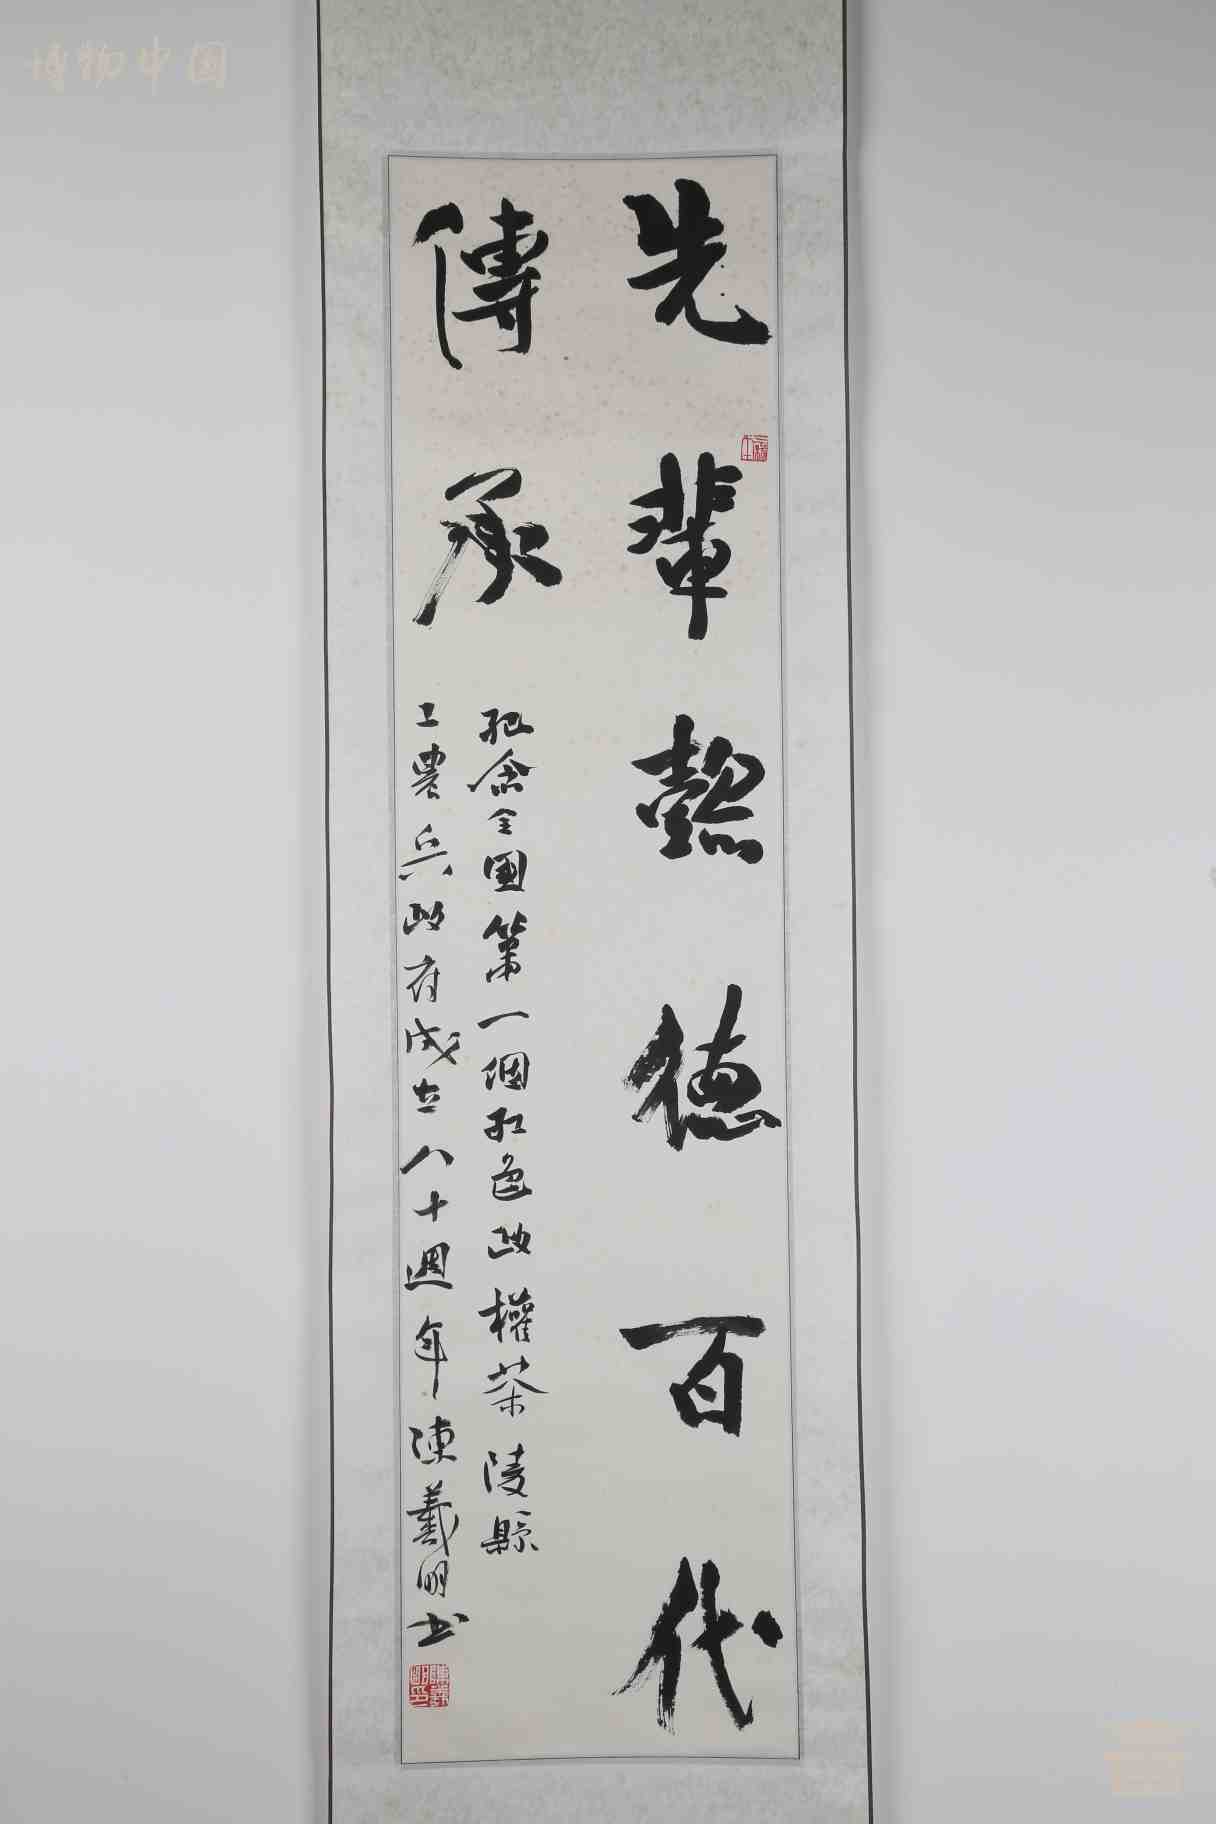 博物中国
先輩懿德百代
傳承
紀念全國第一個紅色政權茶陵縣
工農兵政府成立八十週年陳羲明书